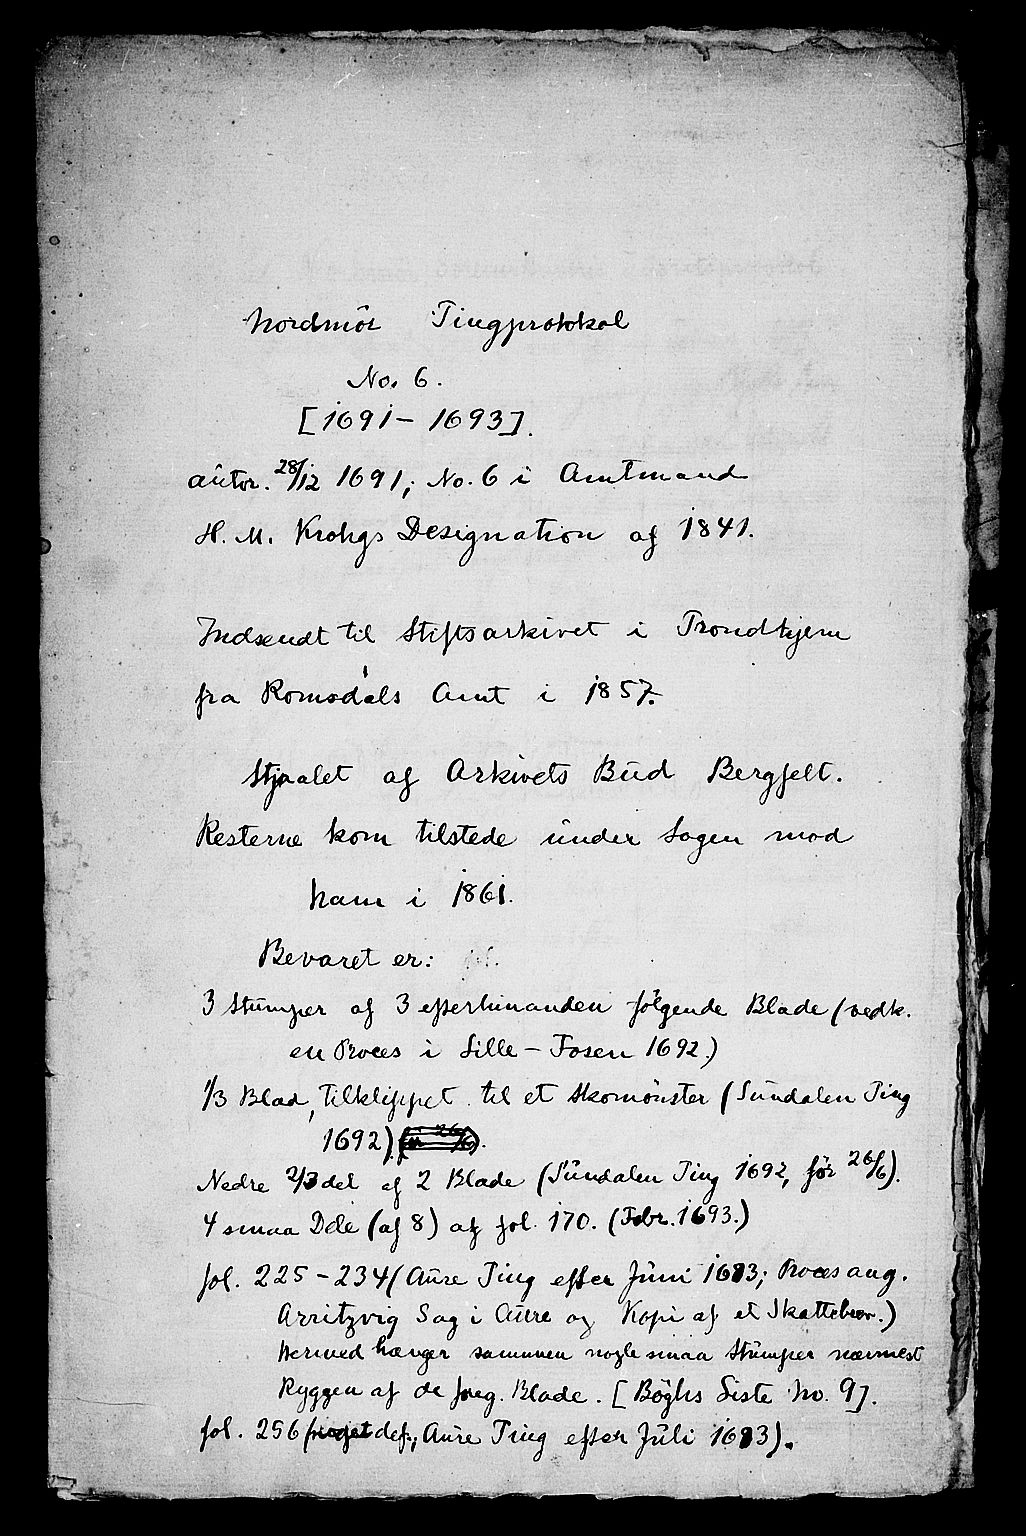 Nordmör Tingprotokol
No. 6.
[1691-1693].
autor. 28/12 1691; No. 6 i Amtmand
H. M. Krohgs Designation af 1841.
Indsendt til Stiftsarkivet i Trondhjem
fra Romsdals Amt i 1857.
Stjaalet af Arkivets Bud Bergfelt.
Resterne kom tilstede under Sagen mod
ham i 1861.
Bevaret er:
3 Stumper af 3 efterhinanden fölgende Blade (vedk.
en Proces i Lille-Fosen 1692.)
1/3 Blad, tilklippet til et Skomönster (Sundalen Ting
1692).
Nedre 2/3 del af 2 Blade (Sundalen Ting 1692, för 26/6).
4 smaa Dele (af 8) af fol. 170. (Febr. 1693.)
fol. 225-234 (Aure Ting efter Juni 1693; Proces ang.
Arritzvig Sag i Aure og Kopi af et Skattebrev.)
Hermed hænger sammen nogle smaa Stumper nærmest
Ryggen af de foreg. Blade. [Böghs Liste No. 9].
fol. 256 (noget def.; Aure Ting efter Juli 1693).